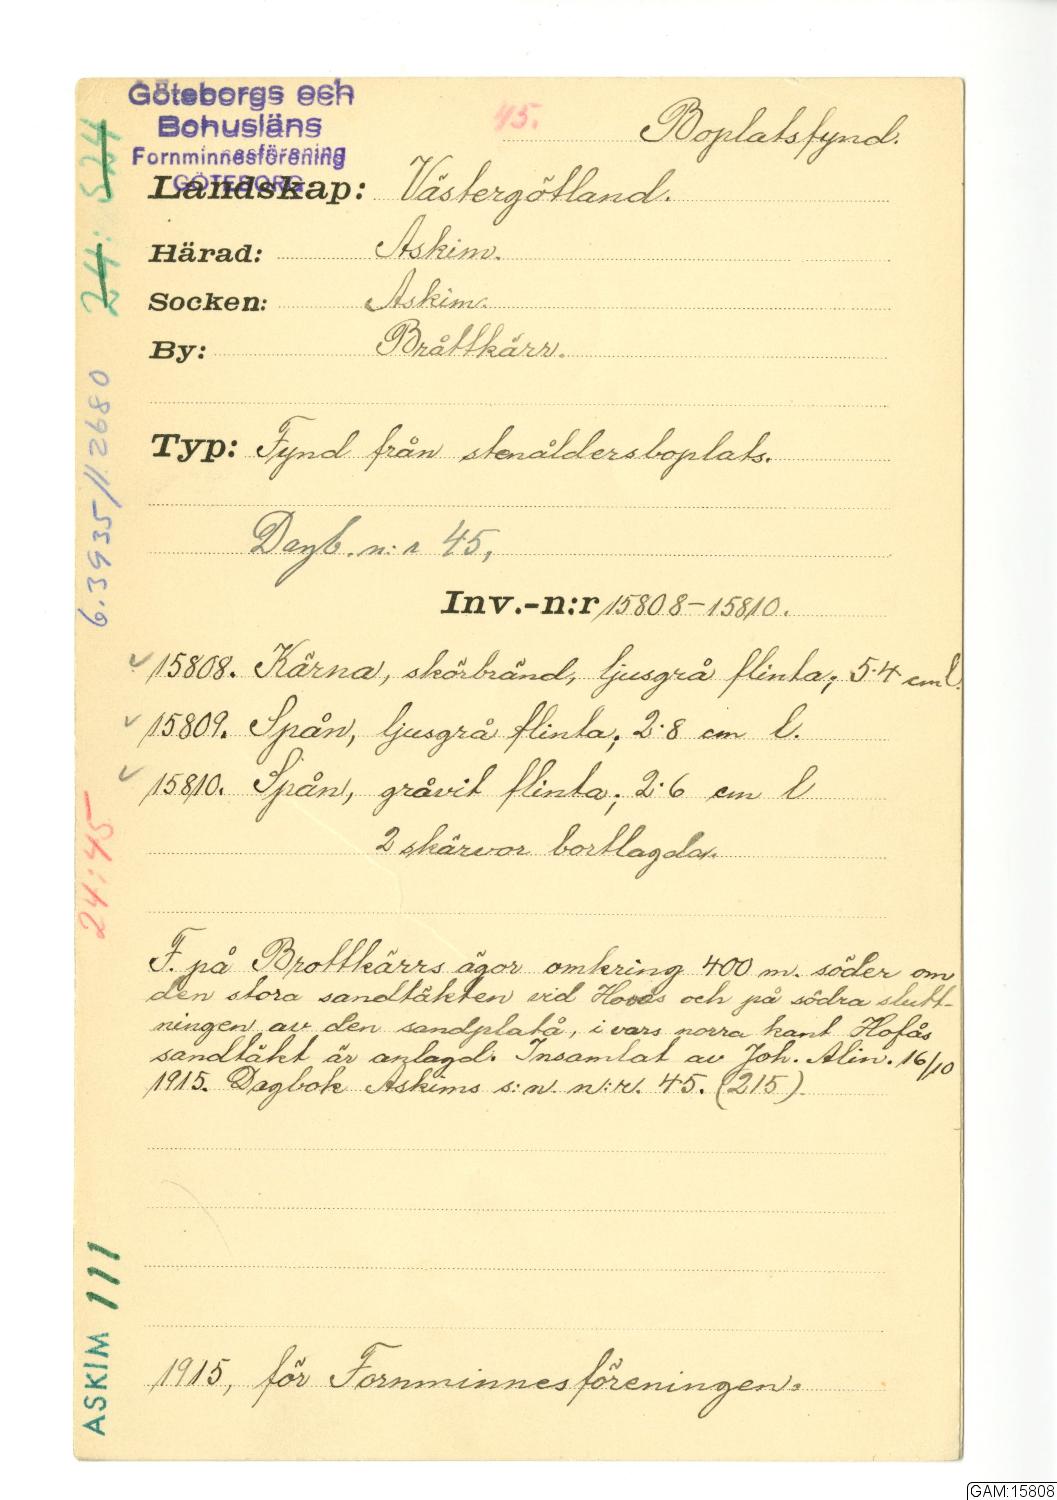 Göteborgs och
Bohusläns
Fornminnesförening
GÖTEBORG
45.
Boplatsfynd.
Landskap: Västergötland.
Härad: Askim.
Socken: Askim.
By: Bråttkärr.
Typ: Fynd från stenåldersboplats.
Dagb. n:r 45,
Inv.-n:r 15808-15810.
✓ 15808. Kärna, skörbränd, ljusgrå flinta; 5.4 cm l.
✓ 15809. Spån, ljusgrå flinta; 2.8 cm l.
✓ 15810. Spån, gråvit flinta; 2.6 cm l
2 skärvor bortlagda.
F. på Brottkärrs ägor omkring 400 m. söder om
den stora sandtäkten vid Hovås och på södra slutt-
ningen av den sandplatå, i vars norra kant Hofås
sandtäkt är anlagd. Insamlat av Joh. Alin. 16/10
1915. Dagbok Askims s:n. n:r. 45. (215).
1915, för Fornminnesföreningen.
24: 524
6.3935/1.2680
24:45
ASKIM 111
GAM:15808